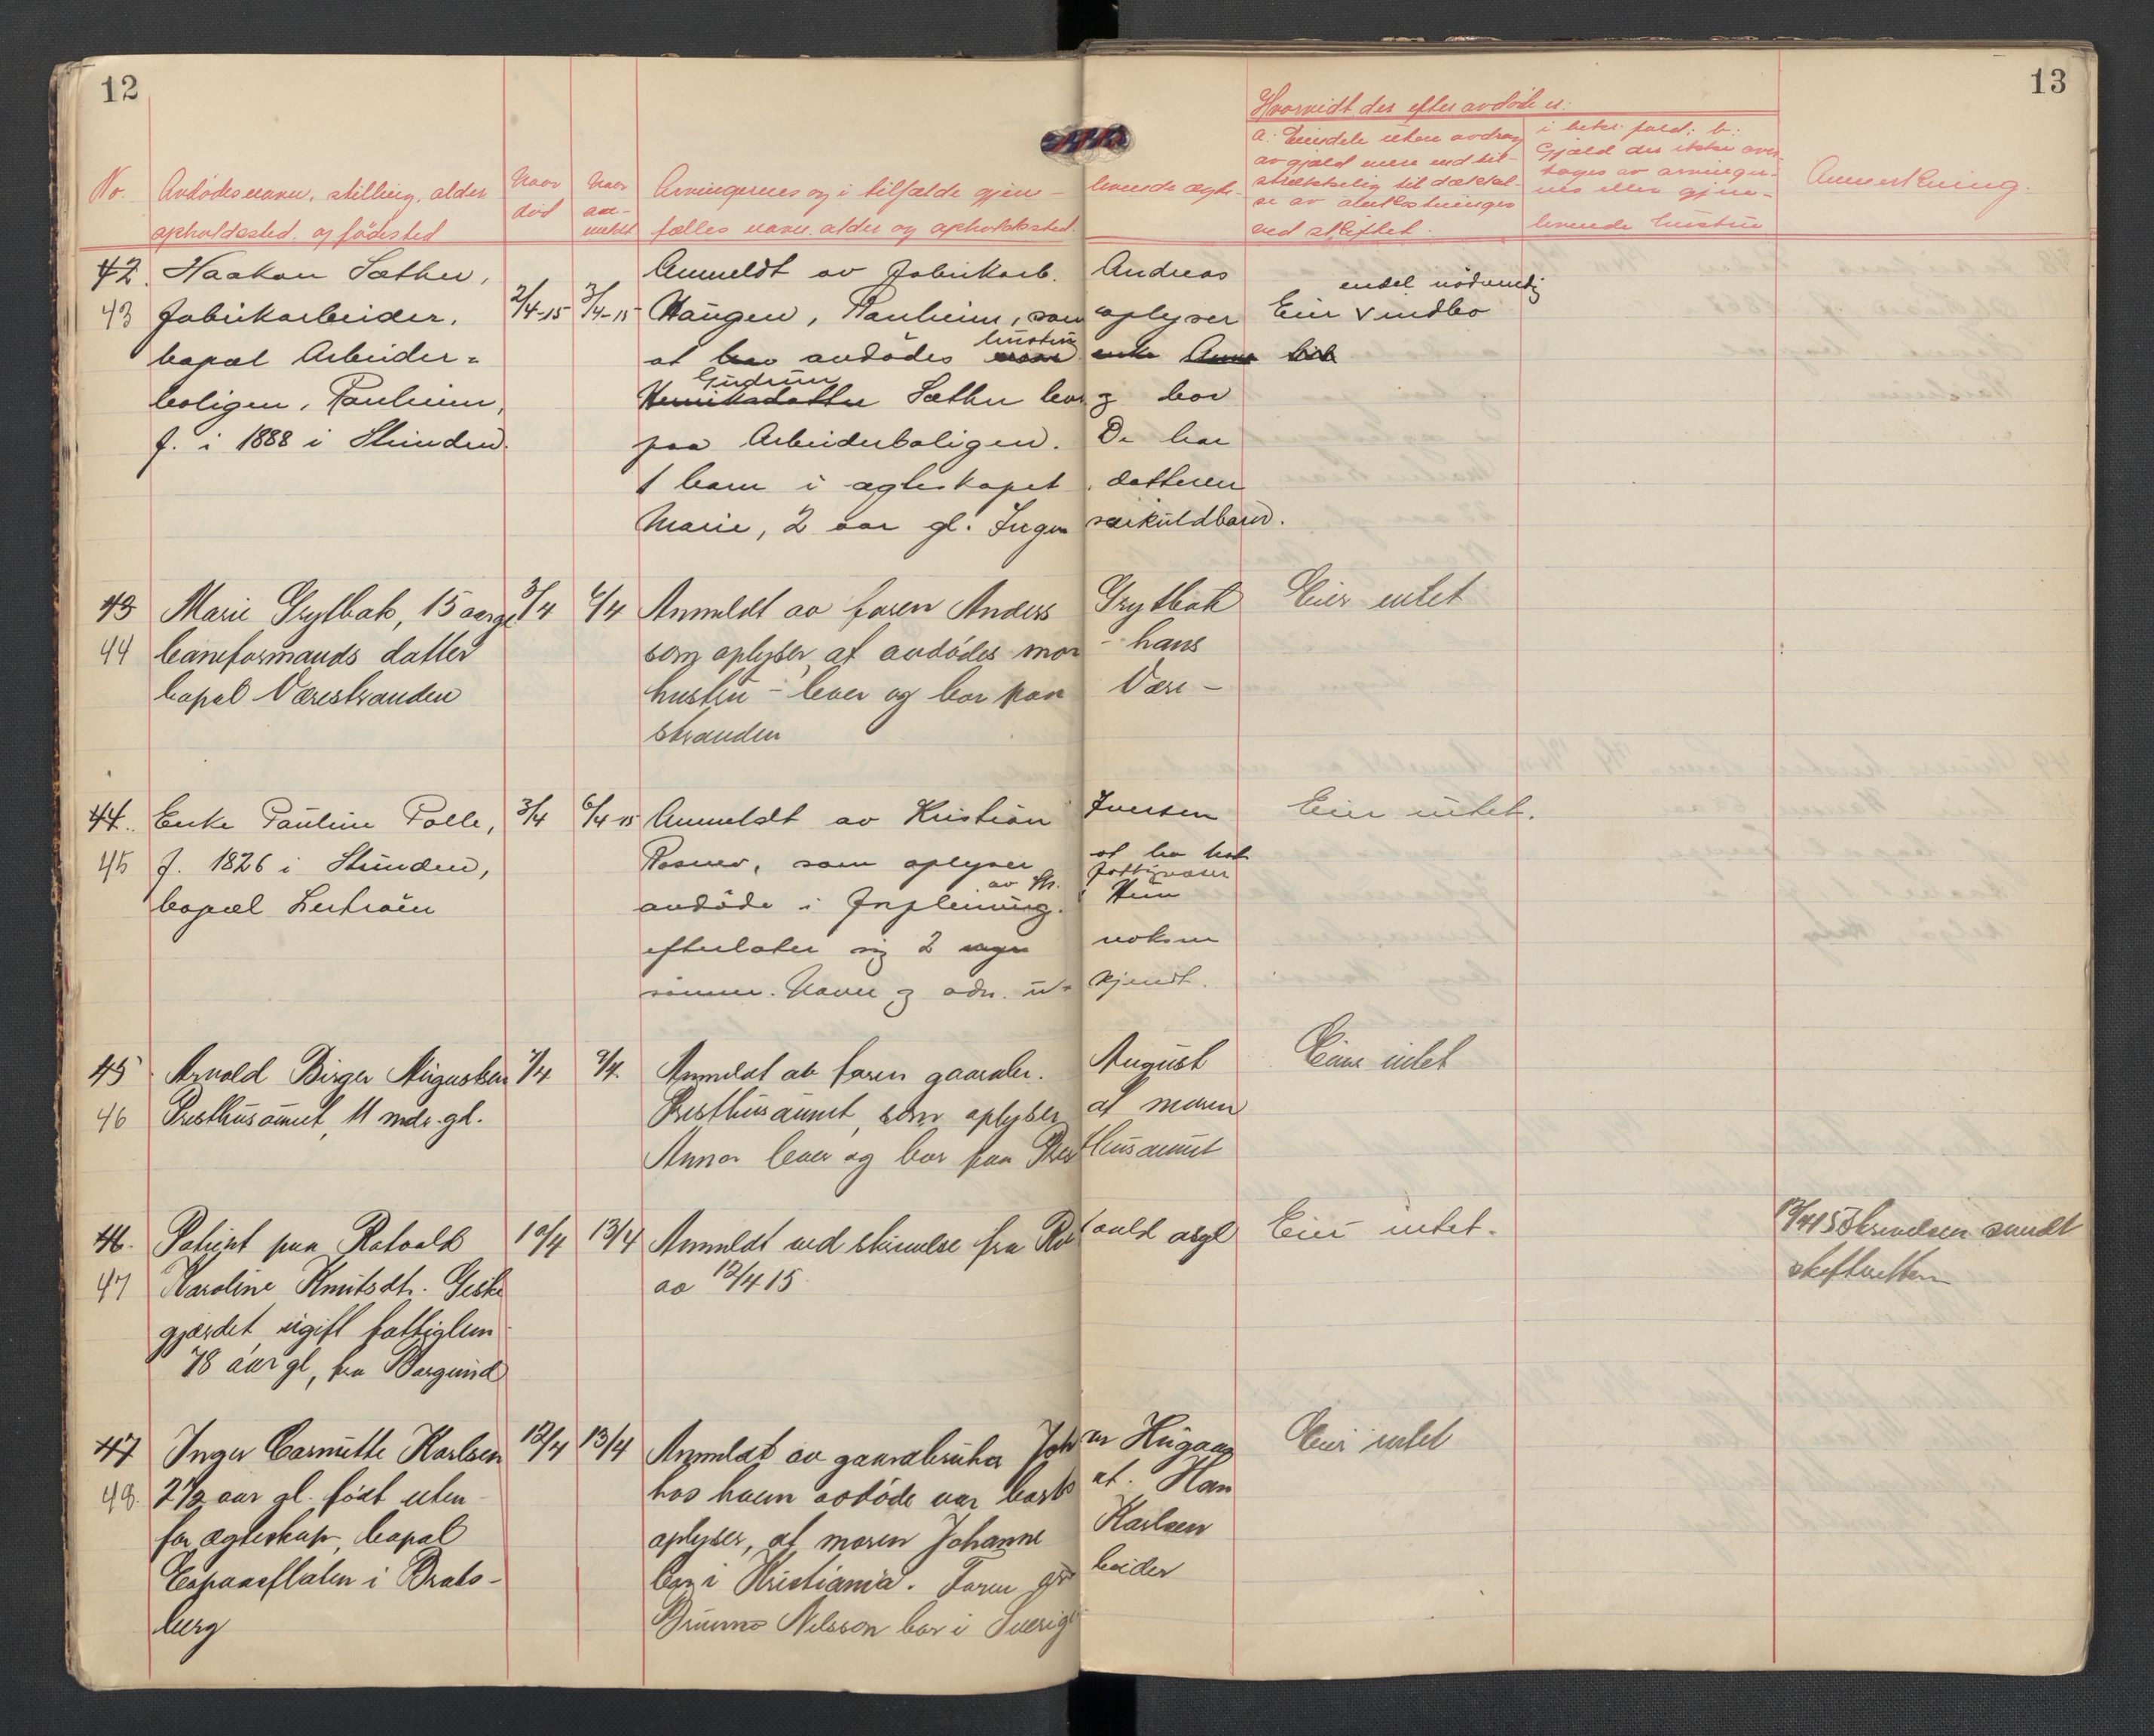 12
13
Hvorvidt der efter avdøde er:
No.
Avdødes navn, stilling, alder
opholdssted og fødested
Naar
død
Naar
an-
meldt
Arvingernes og i tilfælde gjen- levende ægte-
fælles navn, alder og opholdssted.
a. Eiendele uten avdrag
av gjæld mere end til-
strækkelig til dækkel-
se av omkostninger
ved skiftet.
i bekr. fald: b:
Gjæld der ikke over-
tages av arvinger-
nes eller gjen-
levende hustru
Anmerkning.
42. Haakon Sæther,
43 fabrikarbeider,
bopæl Arbeider-
boligen, Ranheim,
f. i 1888 i Strinden.
2/4-15
3/4-15
Anmeldt av fabrikarb. Andreas
Haugen, Ranheim, som oplyser
at avdødes hustru
Gudrun
Henriksdatter Sæther lever og bor
paa Arbeiderboligen. De har
1 barn i ægteskapet, datteren
Marie, 2 aar gl. Ingen særkuldbarn.
endel nødvendig
Eier indbo
43 Marie Grytbak, 15 aar gl
44 baneformands datter
bopæl Værestranden
3/4
6/4
Anmeldt av faren Anders Grytbak
som oplyser, at avdødes mor - hans
hustru - lever og bor paa Være-
stranden
Eier intet
44. Enke Pauline Tolle,
45 f. 1826 i Strinden,
bopæl Leirbroen
3/4
6/4 15
Anmeldt av Kristian Iversen
som oplyser at ha hat
av Str. fattigvæsen
avdøde i forpleining. Hun
efterlater sig 2 voksne
sønner. Navn og adr. ukjendt.
Eier intet.
45 Arnold Birger Augustsen
46 Presthusaunet, 11 mdr. gl.
7/4
9/4.
Anmeldt av faren gaardbr. August
Presthusaunet, som oplyser at moren
Anna lever og bor paa Presthusaunet
Eier intet
46. Patient paa Rotvold
47 Karoline Knutsdtr. Geske
gjærdet, ugift fattiglem
78 aar gl, fra Borgund
10/4
13/4
Anmeldt ved skrivelse fra Rotvold asyl
av 12/4 15
Eier intet.
13/4 15 Skrivelsen sendt
skifteretten
47 Inger Carmitte Karlsen
48. 2 1/2 aar gl. født uten-
for ægteskap, bopæl
i Brats-
berg
12/4
13/4
Anmeldt av gaardbruker Johan Haugaas
hos hvem avdøde var bortsat. Han
oplyser, at moren Johanne Karlsen
bor i Kristiania. Faren
Brunno Nilsson bor i Sverige
Eier intet